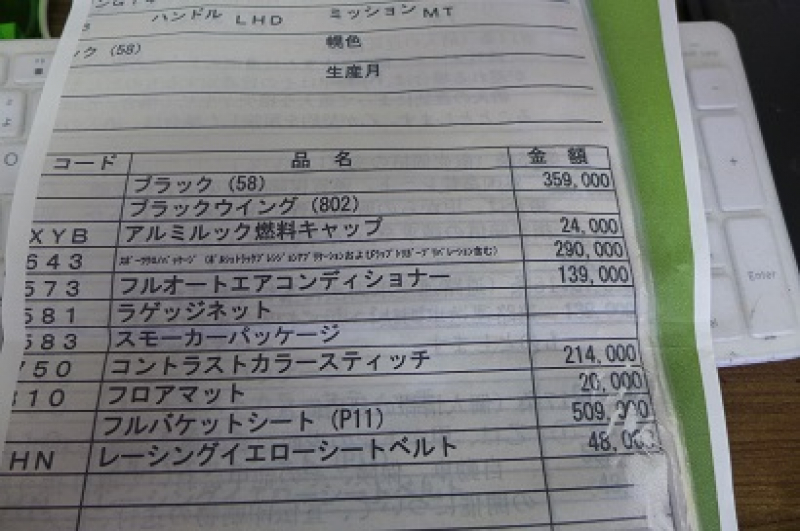 ハンドル LHD ミッション MT
ック (58) 幌色
生産月
コード 品名 金額
ブラック (58) 359,000
ブラックウイング (802)
XYB アルミルック燃料キャップ 24,000
643 290,000
573 フルオートエアコンディショナー 139,000
581 ラゲッジネット
583 スモーカーパッケージ
750 コントラストカラースティッチ 214,000
810 フロアマット 20,000
フルバケットシート (P11) 509,000
HN レーシングイエローシートベルト 48,000
Enter